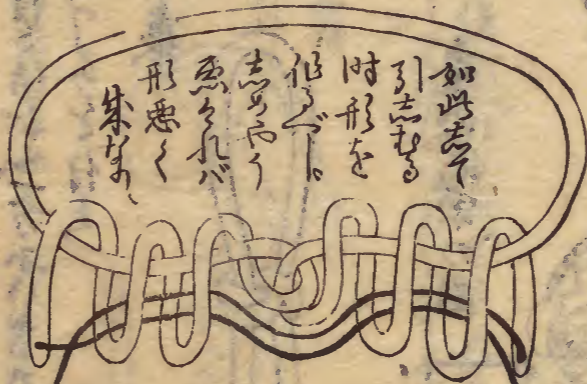 如此志て
引志むる
時形を
作るべし
志めやう
悪けれバ
形悪く
成なり